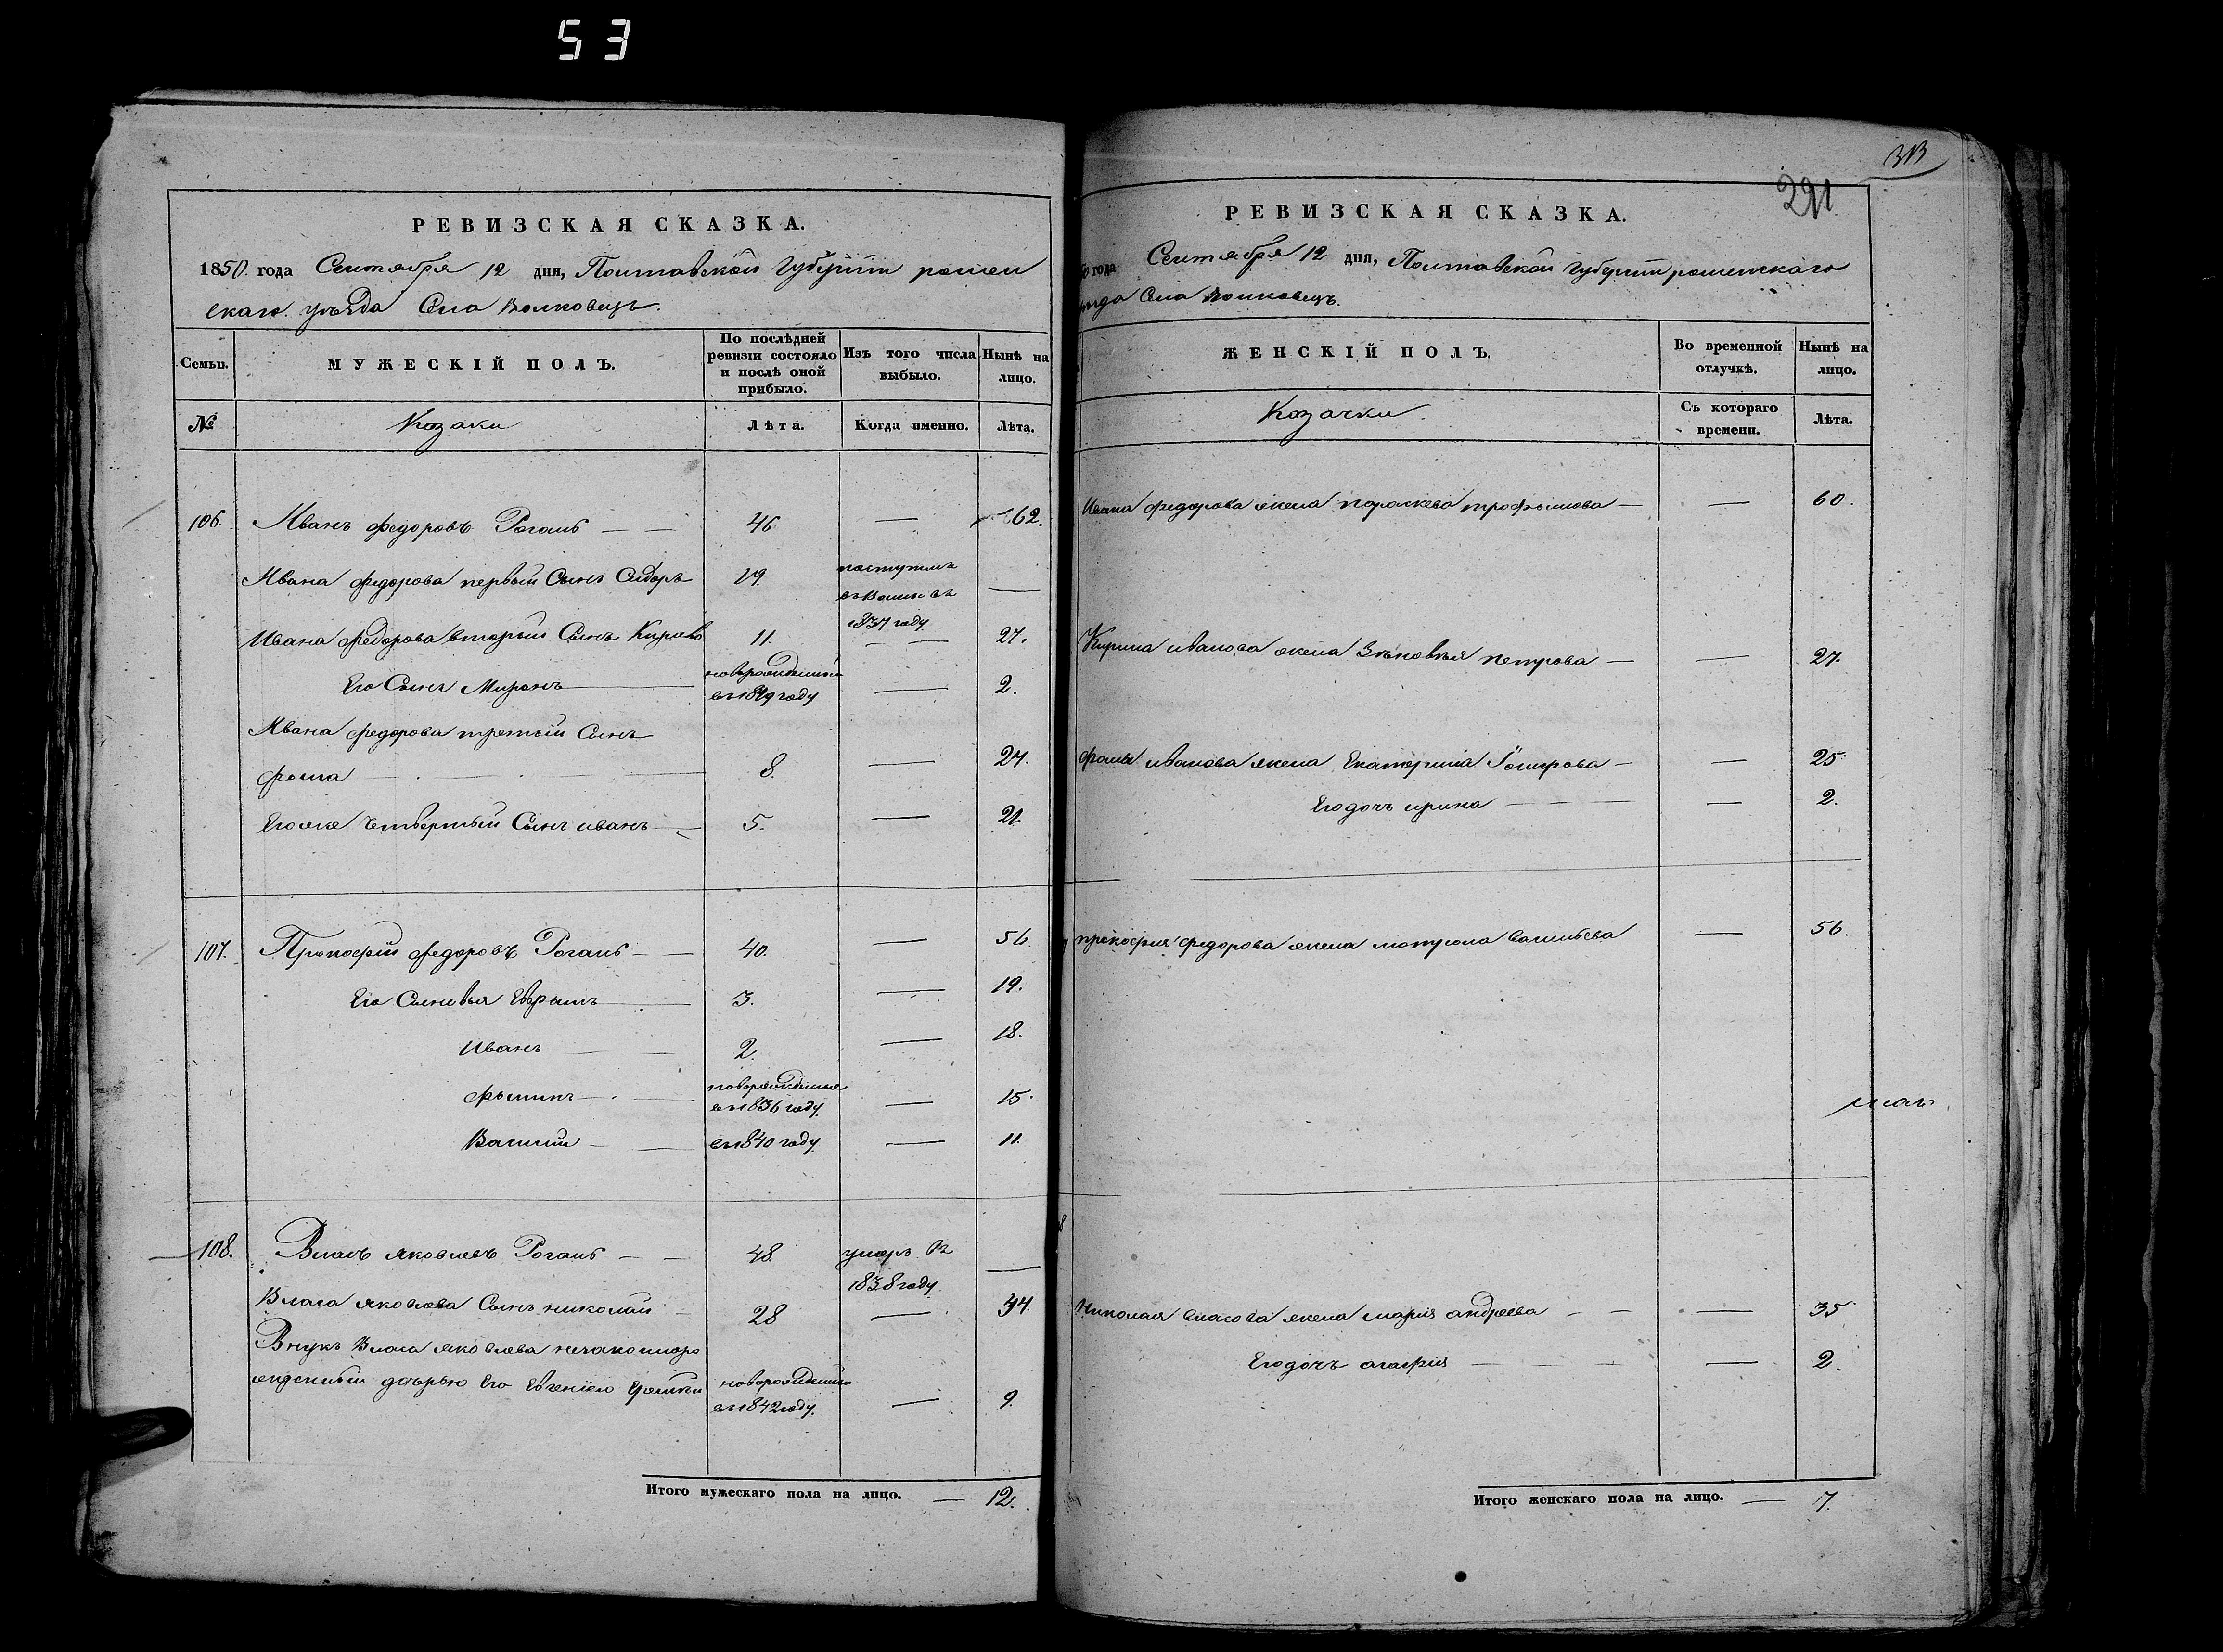 53
РЕВИЗСКАЯ СКАЗКА.
1850. года Сентября 12 дня, Полтавской Губернии ромен
скаго. уѣзда Села Волковецъ.
Семьи.
МУЖЕСКІЙ ПОЛЪ.
По послѣдней ревизіи состояло и послѣ оной прибыло.
Изъ того числа выбыло.
Нынѣ на лицо.
№
Козаки
Лѣта.
Когда именно.
Лѣта.
106. Иванъ федоровъ Рогаль — — 46 — 62.
Ивана федорова первый Сынъ Сидоръ 19. поступилъ
въ 1837 году —
Ивана федорова вторый Сынъ Кирило 11. — — 27.
Его Сынъ Миронъ — новорожденный
въ 1849 году — 2.
Ивана федорова третий Сынъ
фома — 8. — 24.
Егоже четвертый Сынъ иванъ — 5. — 21.
107. Прокофий федоровъ Рогаль — — 40. — 56
Его Сыновья — 3. — 19.
Иванъ — — 2. — 18.
— новорожденные
въ 1836 году — 15.
Василий — — въ 1840 году — 11.
108. Власъ яковлевъ Рогаль — — 48. умеръ въ
1838 году —
Власа яковлева Сынъ николай — 28 — 44.
Внукъ Власа яковлева незаконноро
жденный дочерью Его Евгениею новорожденный
въ 1842 году. — 9.
Итого мужескаго пола на лицо. — 12.
291
РЕВИЗСКАЯ СКАЗКА.
года Сентября 12 дня, Полтавской Губернии роменскаго
уѣзда Села Волковецъ.
ЖЕНСКІЙ ПОЛЪ.
Во временной отлучкѣ.
Нынѣ на лицо.
Козачки
Съ котораго времени.
Лѣта.
Ивана федорова жена параскева трофимова — — 60.
Кирила иванова жена Зѣновѣя петрова — — 27.
фомы иванова жена Екатерина — — 25.
Его дочь ирина — — — — 2.
прокофия федорова жена матрона васильева — 56.
Николая власова жена мария андреева — — — 35.
Его дочь агафия — — — — 2.
Итого женскаго пола на лицо. — 7.